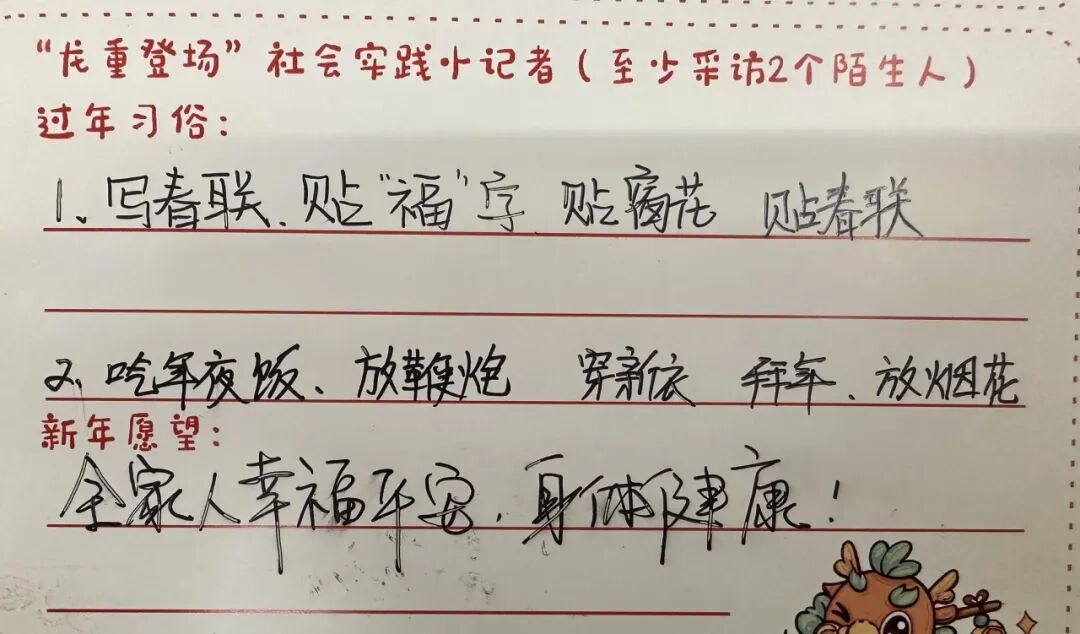 “龙重登场”社会实践小记者(至少采访2个陌生人)
过年习俗:
1、写春联、贴“福”字 贴窗花 贴春联
2、吃年夜饭、放鞭炮 穿新衣 拜年、放烟花
新年愿望:
全家人幸福平安,身体健康!